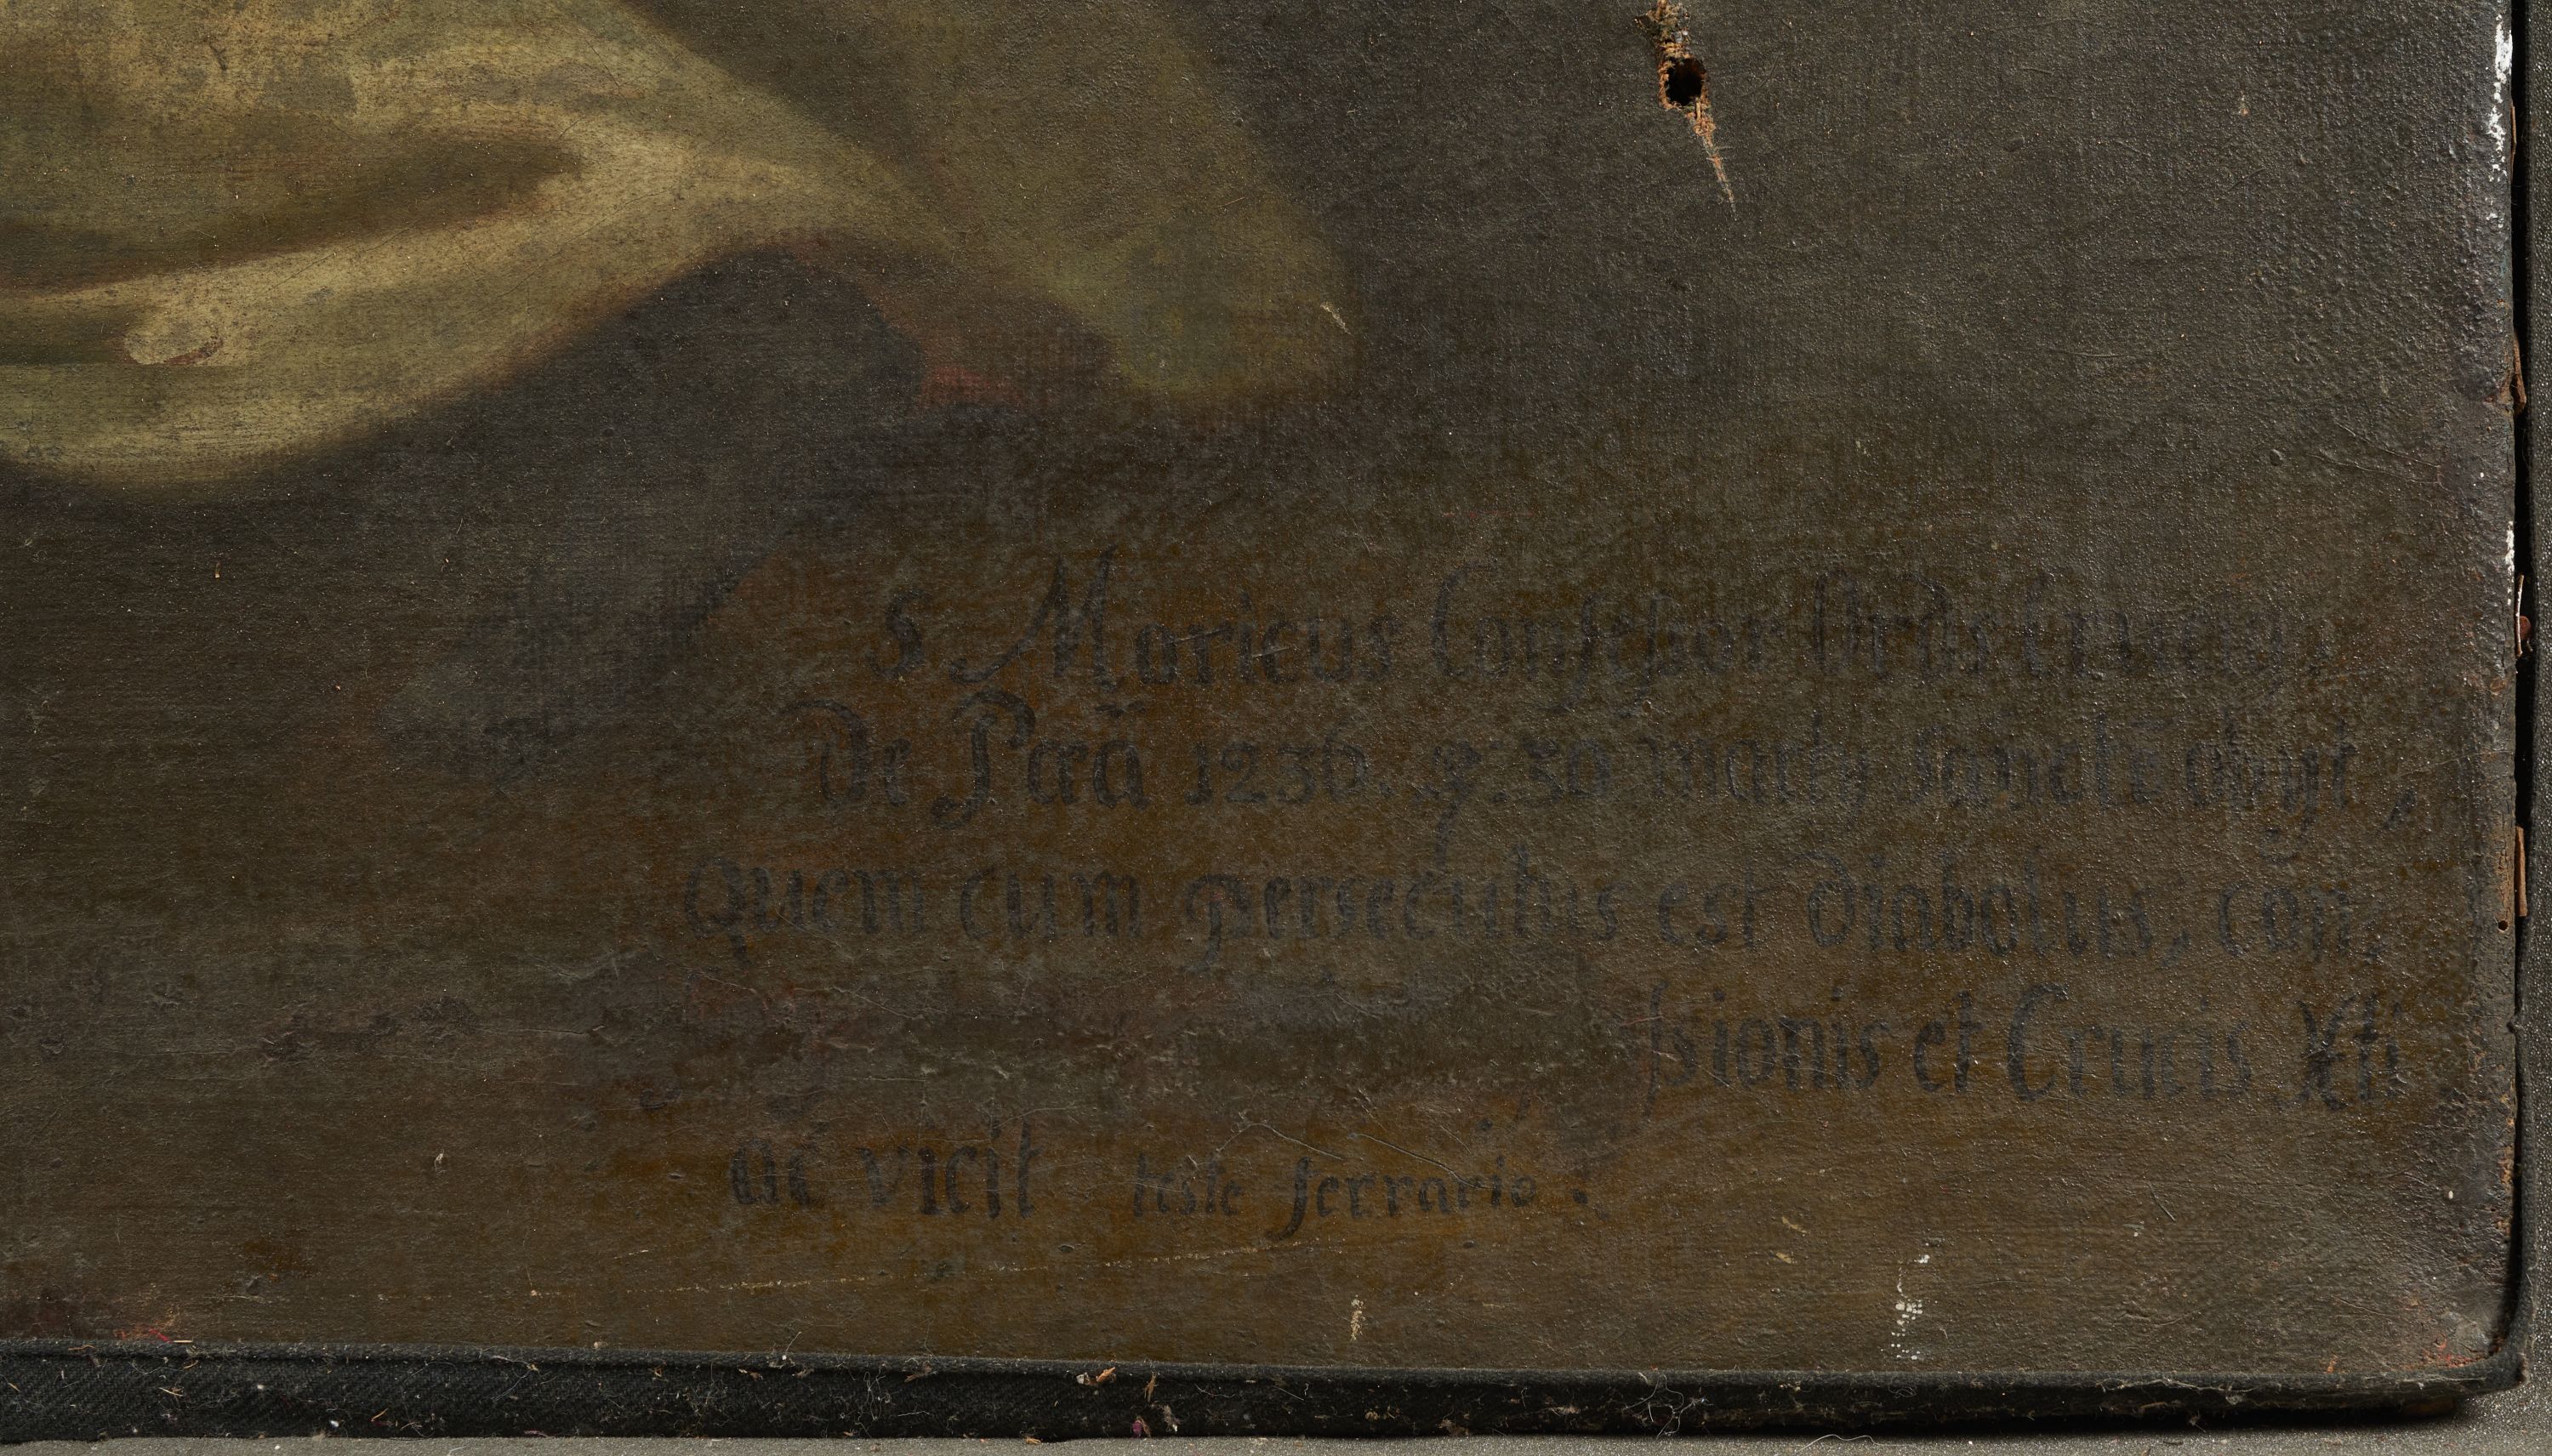 S Moricus Confeſsor Ords Crucery,
De Pœã 1236. 30 martÿ sancte obyt,
Quem cum persecutus est diabolus, con,
ſsionis et Crucis Xſti
ac vicit teste ferrario: